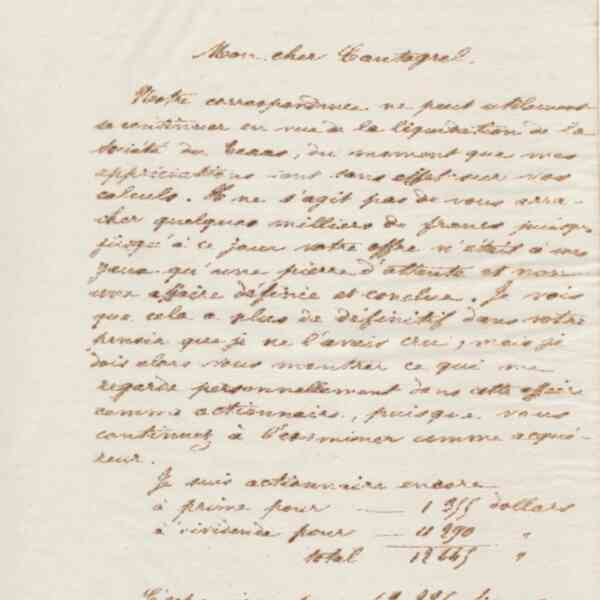 Mon cher Cantagrel.
Notre correspondance ne peut utilement
se continuer en vue de la liquidation de la
Société du Texas, du moment que mes
appréciations sont sans effet sur vos
calculs. Il ne s'agit pas de vous arra-
cher quelques milliers de francs puisque
jusqu'à ce jour votre offre n'était à mes
yeux qu'une pierre d'attente et non
une affaire définie et conclue. Je vois
que cela a plus de définitif dans votre
pensée que je ne l'avais cru, mais je
dois alors vous montrer ce qui me
regarde personnellement dans cette affaire
comme actionnaire, puisque vous
continuez à l'examiner comme acqué-
reur.
Je suis actionnaire encore
à prime pour — 1 355 dollars
à dividende pour — 11 290 "
total 12 645 "